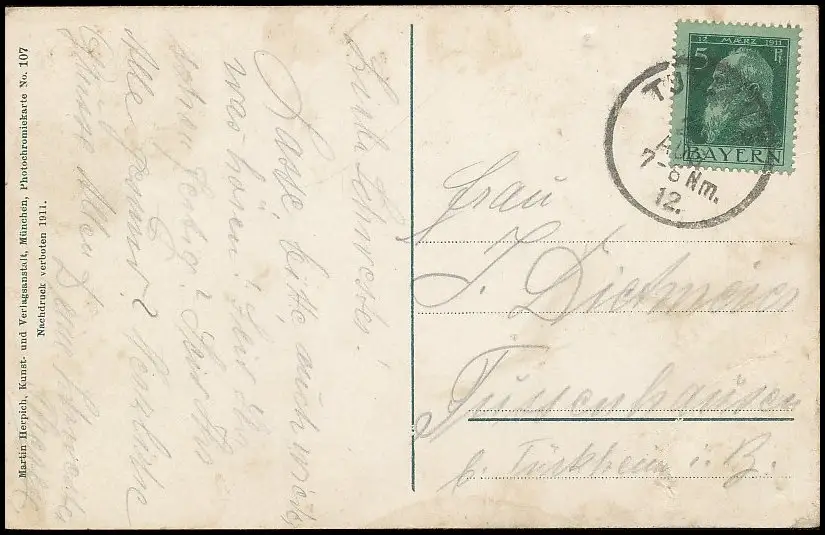 Martin Herpich, Kunst- und Verlagsanstalt, München, Photochromiekarte No. 107
Nachdruck verboten 1911.
Liebe Schwester!
Lasse bitte auch wieder
was hören!
schon fertig? Seid Ihr
Alle gesund? Herzliche
Grüsse Allen Deine Schwester
12. MÆRZ 1911
5 Pf
BAYERN
7-8 Nm.
12.
Frau
J. Dietmaier
Tussenhausen
b. Türkheim i. B.